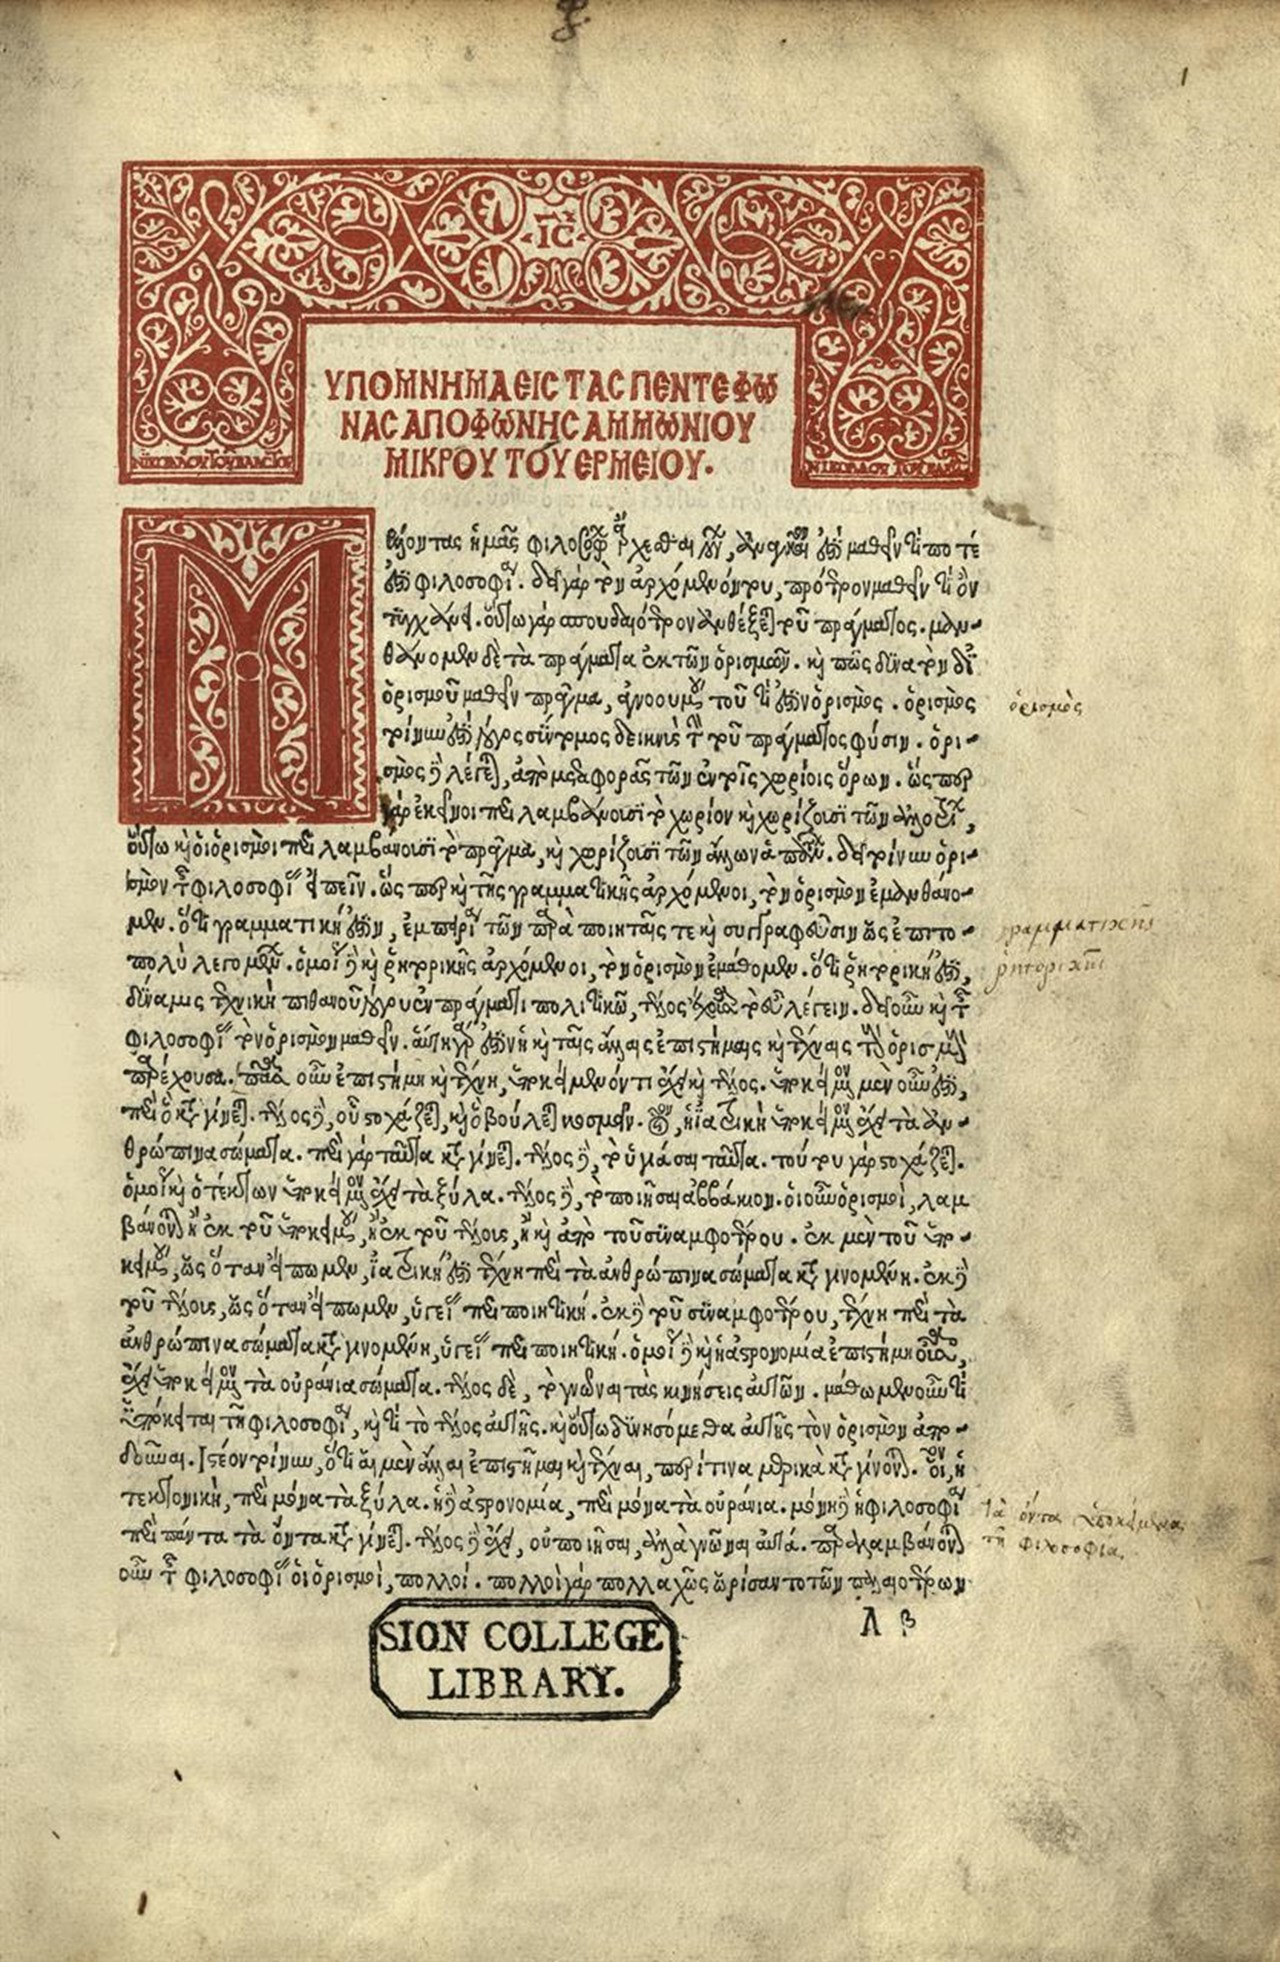 1
ΙϹ ΧϹ
ΝΙΚΟΛΑΟΥ ΤΟΥ ΒΛΑϹΤΟΥ
ΝΙΚΟΛΑΟΥ ΤΟΥ ΒΛΑϹΤΟΥ
ΥΠΟΜΝΗΜΑ ΕΙϹ ΤΑϹ ΠΕΝΤΕ ΦΩ
ΝΑϹ ΑΠΟ ΦΩΝΗϹ ΑΜΜΩΝΙΟΥ
ΜΙΚΡΟΥ ΤΟΥ ΕΡΜΕΙΟΥ.
Μέλλοντας ἡμᾶς φιλοσοφίας ἄρχεσθαι λόγων, ἀναγκαῖον ἐστὶ μαθεῖν τί ποτέ
ἐστι φιλοσοφία. δεῖ γὰρ τὸν ἀρχόμενον του, πρότερον μαθεῖν τί ὂν
τυγχάνει. οὕτω γὰρ σπουδαιότερον ἀνθέξεται τοῦ πράγματος. μαν-
θάνομεν δὲ τὰ πράγματα ἐκ τῶν ὁρισμῶν. καὶ πῶς δυνατὸν δι'
ὁρισμοῦ μαθεῖν πρᾶγμα, ἀγνοουμένου τοῦ τί ἐστὶν ὁρισμὸς. ὁρισμὸς
τοίνυν ἐστὶ λόγος σύντομος δεικνὺς τὴν τοῦ πράγματος φύσιν. ὁρι-
σμὸς δὲ λέγεται, ἀπὸ μεταφορᾶς τῶν ἐν τοῖς χωρίοις ὅρων. ὥσπερ
γὰρ ἐκεῖνοι περιλαμβάνουσι τὸ χωρίον καὶ χωρίζουσι τῶν
οὕτω καὶ οἱ ὁρισμοὶ περιλαμβάνουσι τὸ πρᾶγμα, καὶ χωρίζουσι τῶν ἄλλων ἁπάντων. δεῖ τοίνυν ὁρι-
σμὸν τῆς φιλοσοφίας εἰπεῖν. ὥσπερ καὶ τῆς γραμματικῆς ἀρχόμενοι, τὸν ὁρισμὸν ἐμανθάνο-
μεν. ὅτι γραμματική ἐστιν, ἐμπειρία τῶν παρὰ ποιηταῖς τε καὶ συγγραφεῦσιν ὡς ἐπιτο-
πολὺ λεγομένων. ὁμοίως δὲ καὶ ῥητορικῆς ἀρχόμενοι, τὸν ὁρισμὸν ἐμάθομεν. ὅτι ῥητορική ἐστι,
δύναμις τεχνικὴ πιθανοῦ λόγου ἐν πράγματι πολιτικῷ, τέλος ἔχουσα τὸ εὖ λέγειν. δεῖ οὖν καὶ τῆς
φιλοσοφίας τὸν ὁρισμὸν μαθεῖν. αὕτη γάρ ἐστιν ἡ καὶ ταῖς ἄλλαις ἐπιστήμαις καὶ τέχναις τοὺς ὁρισμοὺς
παρέχουσα. πᾶσα οὖν ἐπιστήμη καὶ τέχνη, ὑποκείμενόν τι ἔχει καὶ τέλος. ὑποκείμενον μὲν οὖν ἐστι,
περὶ ὃ καταγίνεται. τέλος δὲ, οὗ στοχάζεται, καὶ ὃ βούλεται κοσμεῖν. οἷον, ἡ ἰατρικὴ ὑποκείμενον ἔχει τὰ ἀν-
θρώπινα σώματα. περὶ γὰρ ταῦτα καταγίνεται. τέλος δὲ, τὸ ὑγιάσαι ταῦτα. τούτου γὰρ στοχάζεται.
ὁμοίως καὶ ὁ τέκτων ὑποκείμενον ἔχει τὰ ξύλα. τέλος δὲ, τὸ ποιῆσαι ἀββάκιον. οἱ οὖν ὁρισμοὶ, λαμ
βάνονται ἢ ἐκ τοῦ ὑποκειμένου, ἢ ἐκ τοῦ τέλους, ἢ καὶ ἀπὸ τοῦ συναμφοτέρου. ἐκ μὲν τοῦ ὑπο-
κειμένου, ὡς ὅταν εἴπωμεν, ἰατρική ἐστι τέχνη περὶ τὰ ἀνθρώπινα σώματα καταγινομένη. ἐκ δὲ
τοῦ τέλους, ὡς ὅταν εἴπωμεν, ὑγείας περιποιητική. ἐκ δὲ τοῦ συναμφοτέρου, τέχνη περὶ τὰ
ἀνθρώπινα σώματα καταγινομένη, ὑγείας περιποιητική. ὁμοίως δὲ καὶ ἡ ἀστρονομία ἐπιστήμη οὖσα,
ἔχει ὑποκείμενον τὰ οὐράνια σώματα. τέλος δὲ, τὸ γνῶναι τὰς κινήσεις αὐτῶν. μάθωμεν οὖν τί
ὑπόκειται τῇ φιλοσοφίᾳ, καὶ τί τὸ τέλος αὐτῆς. καὶ οὕτω δυνησόμεθα αὐτῆς τὸν ὁρισμὸν ἀπο-
δοῦναι. Ἰστέον τοίνυν, ὅτι αἱ μὲν ἄλλαι ἐπιστῆμαι καὶ τέχναι, περί τινα μερικὰ καταγίνονται. οἷον, ἡ
τεκτονικὴ, περὶ μόνα τὰ ξύλα. ἡ δὲ ἀστρονομία, περὶ μόνα τὰ οὐράνια. μόνη δὲ ἡ φιλοσοφία
περὶ πάντα τὰ ὄντα καταγίνεται. τέλος δὲ ἔχει, οὐ ποιῆσαι, ἀλλὰ γνῶναι αὐτά. παραλαμβάνονται
οὖν τῆς φιλοσοφίας οἱ ὁρισμοὶ, πολλοί. πολλοὶ γὰρ πολλαχῶς ὡρίσαντο τῶν παλαιοτέρων
Α β
ὁρισμὸς
γραμματικῆς
ῥητορικῆς
τὰ ὄντα ὑποκείμενα
τῇ φιλοσοφίᾳ
SION COLLEGE
LIBRARY.